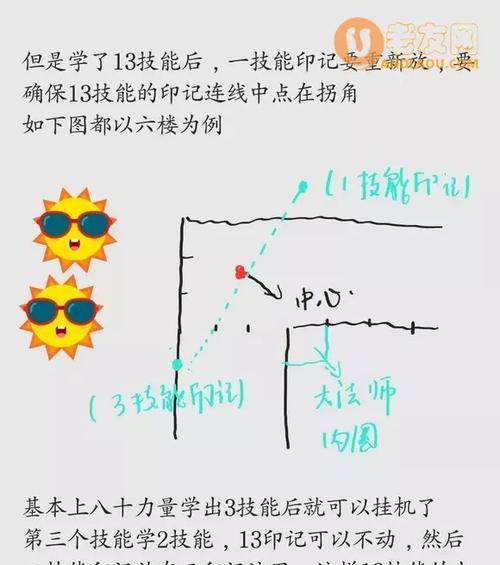 老友网
LAOYOUU.COM
但是学了13技能后，一技能印记要重新放，要
确保13技能的印记连线中点在拐角
如下图都以六楼为例
(1技能印记)
中心
(3技能印记)
大法师
内圈
基本上八十力量学出3技能后就可以挂机了
第三个技能学2技能，13印记可以不动，然后